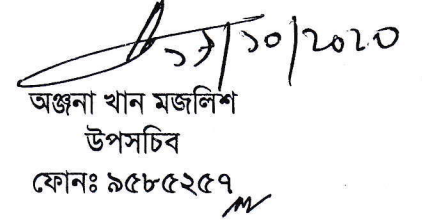 ১৯/১০/২০২০
অঞ্জনা খান মজলিশ
উপসচিব
ফোনঃ ৯৫৮৫২৫৭